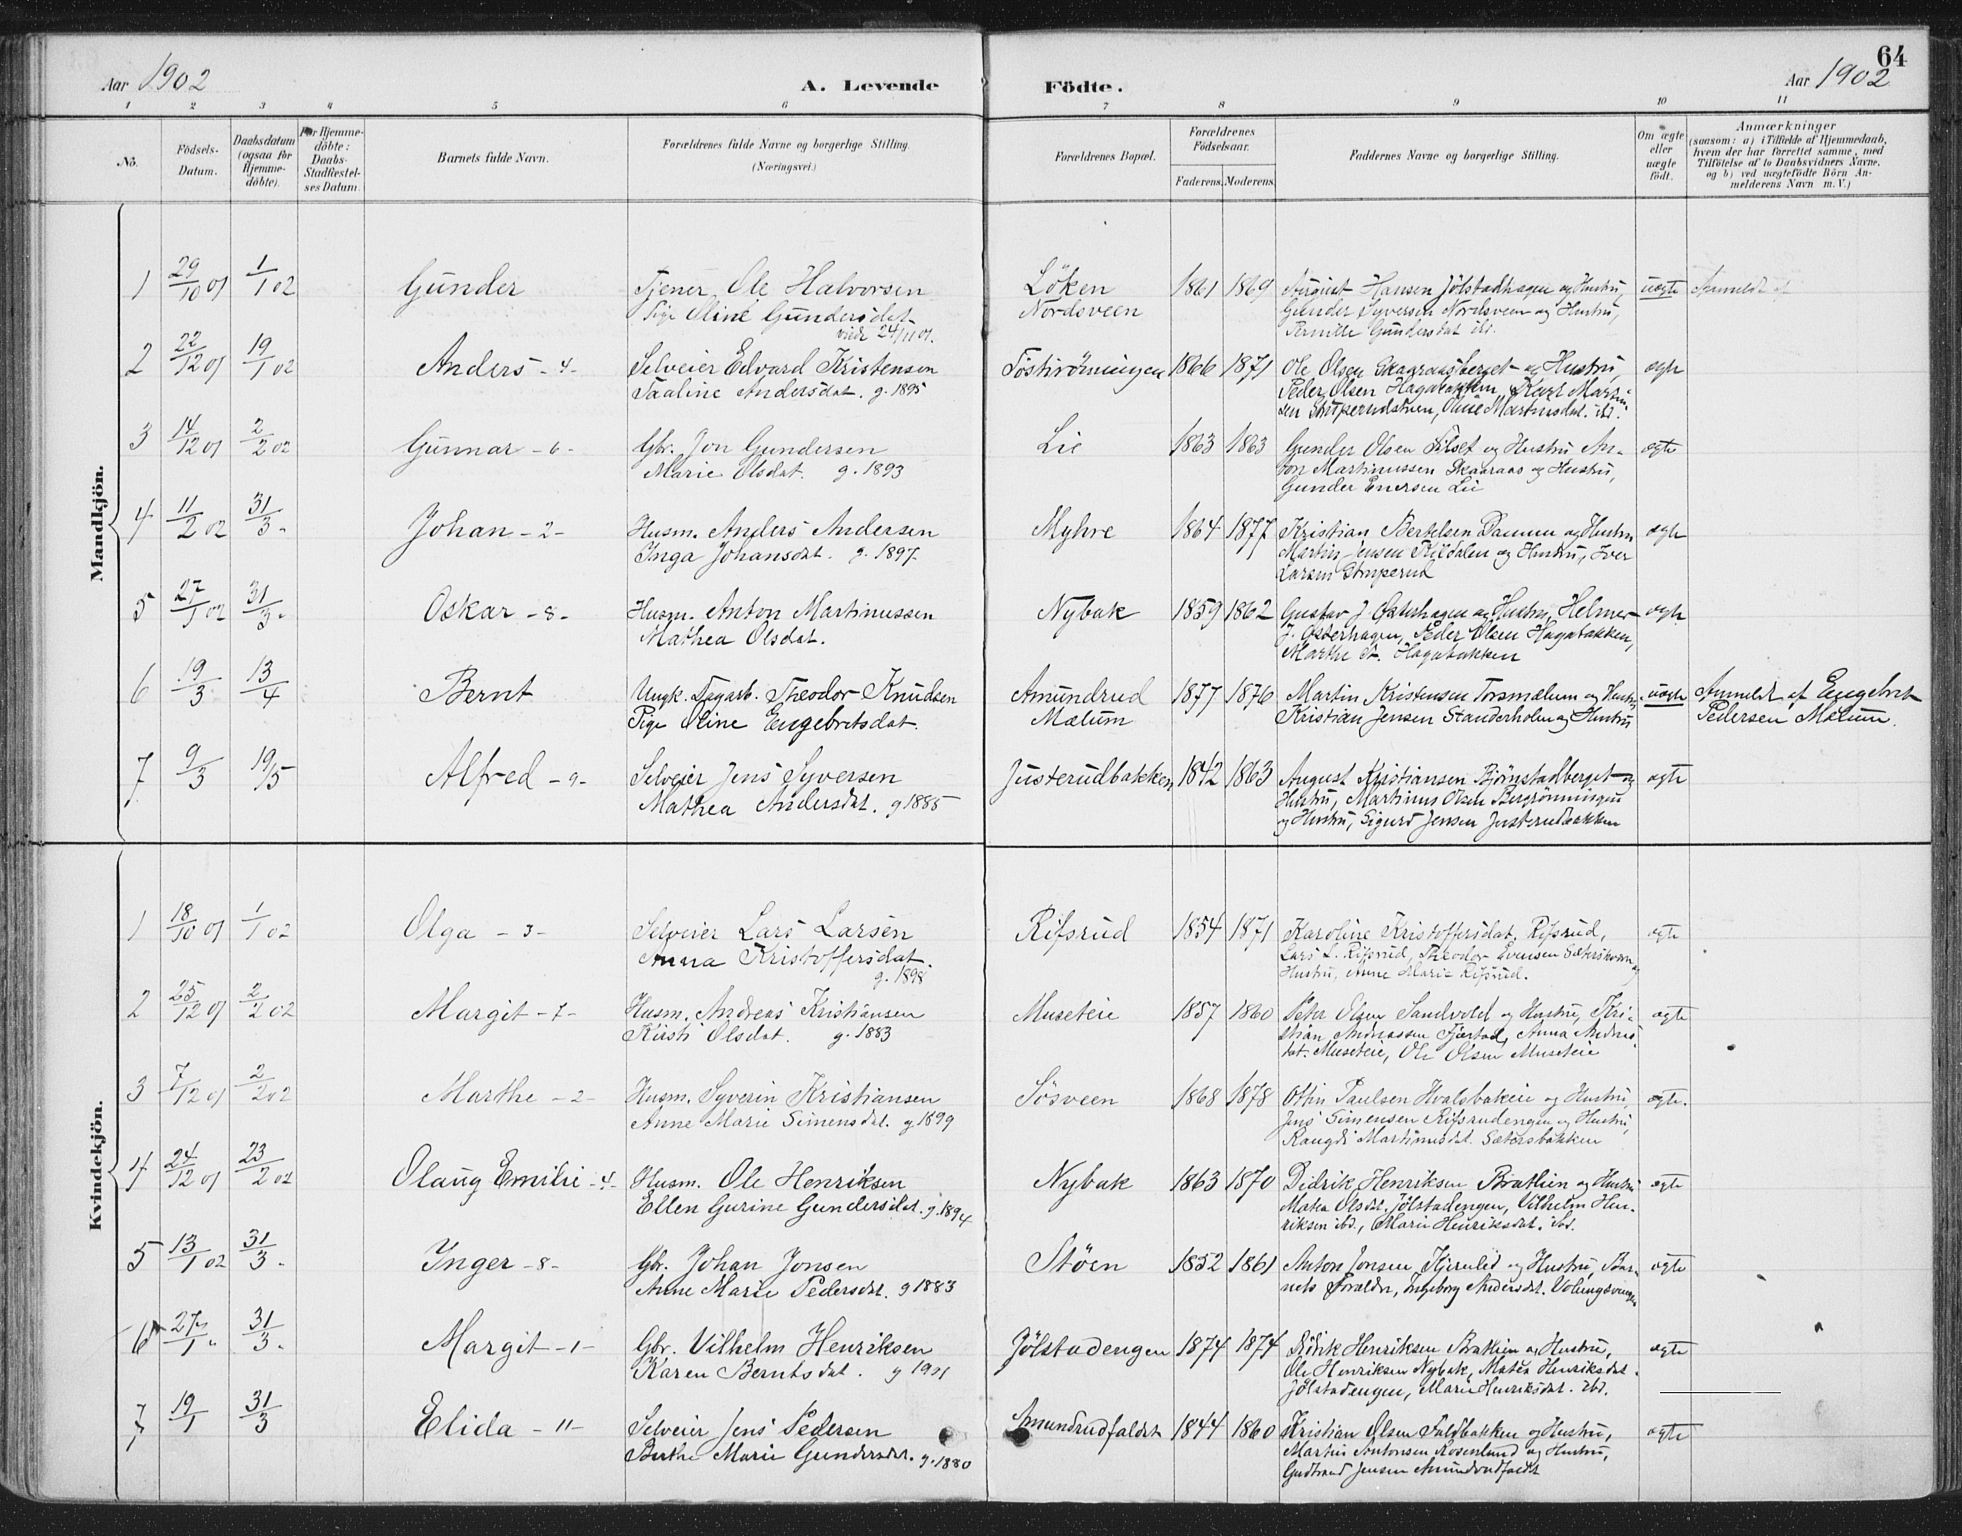 64
Aar 1902
A. Levende Födte.
Aar 1902
1 2 3 4 5 6 7 8 9 10 11
Nö.
Födsels-
Datum.
Daabsdatum
(ogsaa for
Hjemme-
döbte).
For Hjemme-
döbte:
Daabs-
Stadfæstel-
ses Datum.
Barnets fulde Navn.
Forældrenes fulde Navne og borgerlige Stilling.
(Næringsvei.)
Forældrenes Bopæl.
Forældrenes
Födselsaar.
Faderens. Moderens.
Faddernes Navne og borgerlige Stilling.
Om ægte
eller
uægte
födt.
Anmærkninger
(saasom: a) i Tilfælde af Hjemmedaab,
hvem der har forrettet samme, med
Tilföielse af to Daabsvidners Navne,
og b) ved uægtefödte Börn An-
melderens Navn m. V.)
Mandkjön.
1 29/10 01 1/1 02 Gunder Tjener Ole Halvorsen Löken 1861 1869 August Hansen Jølstadhagen og Hustru, uægte Anmeldt af
Pige Oline Gundersdat Nordsveen Gunder Syversen Nordsveen og Hustru,
viede 24/11 01. Pernille Gundersdat ibd.
2 22/12 01 19/1 02 Anders - 4 - Selveier Edvard Kristensen 1866 1871 Ole Olsen Skaaraasberget og Hustru, ægte
Taaline Andersdat. g. 1895 Peder Olsen Hagabakken, Karl Martin-
sen Stuperudstuen, Oline Martinsdat. ibd.
3 14/12 01 2/2 02 Gunnar - 6 - Gbr. Jon Gundersen Lie 1863 1863 Gunder Olsen Filset og Hustru An- ægte
Marie Olsdat. g. 1893 ton Martinussen Skaaraas og Hustru,
Gunder Enersen Lie
4 11/2 02 31/3 - Johan - 2 - Husm. Anders Andersen Myhre 1864 1877 Kristian Bertelsen og Hustru ægte
Inga Johansdat. g. 1897 Martin Jensen Kildalen og Hustru, Iver
Larsen Stuperud
5 27/1 02 31/3 - Oskar - 8 - Husm. Anton Martinussen Nybak 1859 1862 Gustav J. Østerhagen og Hustru, Helmer ægte
Mathea Olsdat. J. Østerhagen, Peder Olsen Hagabakken,
Marthe Hagabakken
6 19/3 13/4 Bernt Ungk. Dagarb. Theodor Knudsen Amundrud 1877 1876 Martin Kristensen Torsmælum og Hustru, uægte Anmeldt af Engebret
Pige Oline Engebretsdat. Mælum Kristian Jensen Standerholm og Hustru Pedersen Mælum.
7 9/3 19/5 Alfred - 9 - Selveier Jens Syversen Justerudbakken 1842 1863 August Kristiansen Bjørnstadberget og ægte
Mathea Andersdat. g 1885 Hustru, Martinus Olsen Bergrønningen
og Hustru, Sigurd Jensen Justerudbakken
Kvindekjön.
1 18/10 01 1/1 02 Olga - 3 - Selveier Lars Larsen Rifsrud 1854 1871 Karoline Kristoffersdat. Rifsrud, ægte
Anna Kristoffersdat. Lars L. Rifsrud, Theodor Evensen og
g. 1898 Hustru, Anne Marie Rifsrud.
2 25/12 01 2/2 02 Margit - 7 - Husm. Andreas Kristiansen Museteie 1857 1860 Peter Olsen Sandvold og Hustru, Kri- ægte
Kirsti Olsdat. g. 1883 stian Andreassen Fjæstad, Anna Andreas-
dat. Museteie, Ole Olsen Museteie
3 7/12 01 2/2 02 Marthe - 2 - Husm. Syverin Kristiansen Søsveen 1868 1878 Ottin Paulsen Hvalsbakeie og Hustru, ægte.
Anne Marie Simensdat. g 1899 Jens Simensen Rifsrudengen og Hustru,
Raugdi Martinusdat. Sætersbakken
4 24/12 01 23/2 02 Olaug Emilie - 4 - Husm. Ole Henriksen Nybak 1863 1870 Didrik Henriksen Brathen og Hustru ægte
Ellen Gurine Gundersdat. g. 1894 Matea Olsdat. Jølstadengen, Vilhelm Hen-
riksen ibd., Marie Henriksdat. ibd.
5 13/1 02 31/3 - Inger - 8 - Gbr. Johan Jonsen Støen 1852 1861 Anton Jonsen Kjernlid og Hustru, Bar- ægte
Anne Marie Pedersdat. g 1883 nets Forældre, Ingeborg Andersdat.
6 27/1 - 31/3 - Margit - 1 - Gbr. Vilhelm Henriksen Jølstadengen 1874 1874 Didrik Henriksen Brathen og Hustru, ægte
Karen Berntsdat. g 1901 Ole Henriksen Nybak, Matea Henriksdat.
Jølstadengen, Marie Henriksdat. ibd.
7 19/1 31/3 Elida - 11 - Selveier Jens Pedersen Amundrudfaldet 1844 1860 Kristian Olsen Faldbakken og Hustru, ægte
Berthe Marie Gundersdat. g. 1880 Martin Antonsen Rosenlund og Hustru,
Gudbrand Jensen Amundrudfaldet